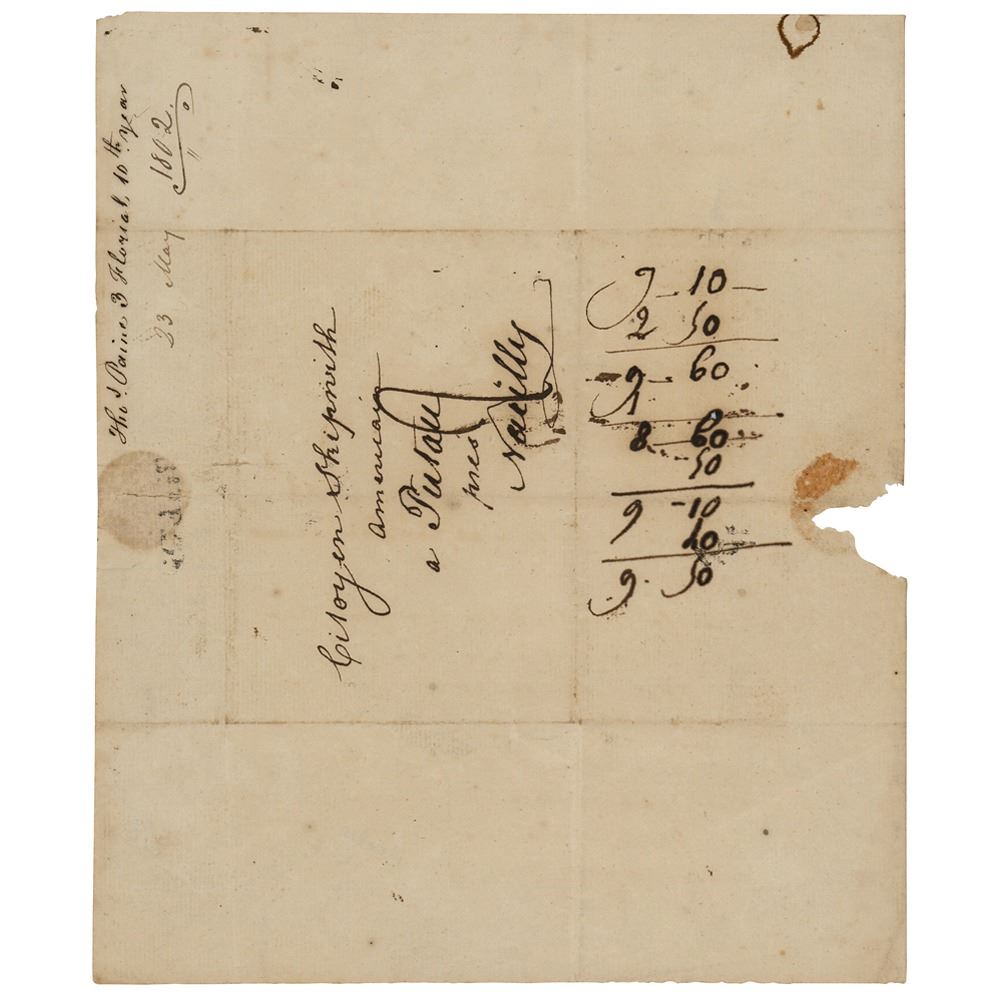 Thos. Paine 3 Florial, 10th year
23 May 1802.
Citoyen Skipwith
Americain
a Puteau
pres
Neuilly
9 - 10 -
2 50
9 - 60
1
8 - 60
50
9 - 10
40
9 - 50